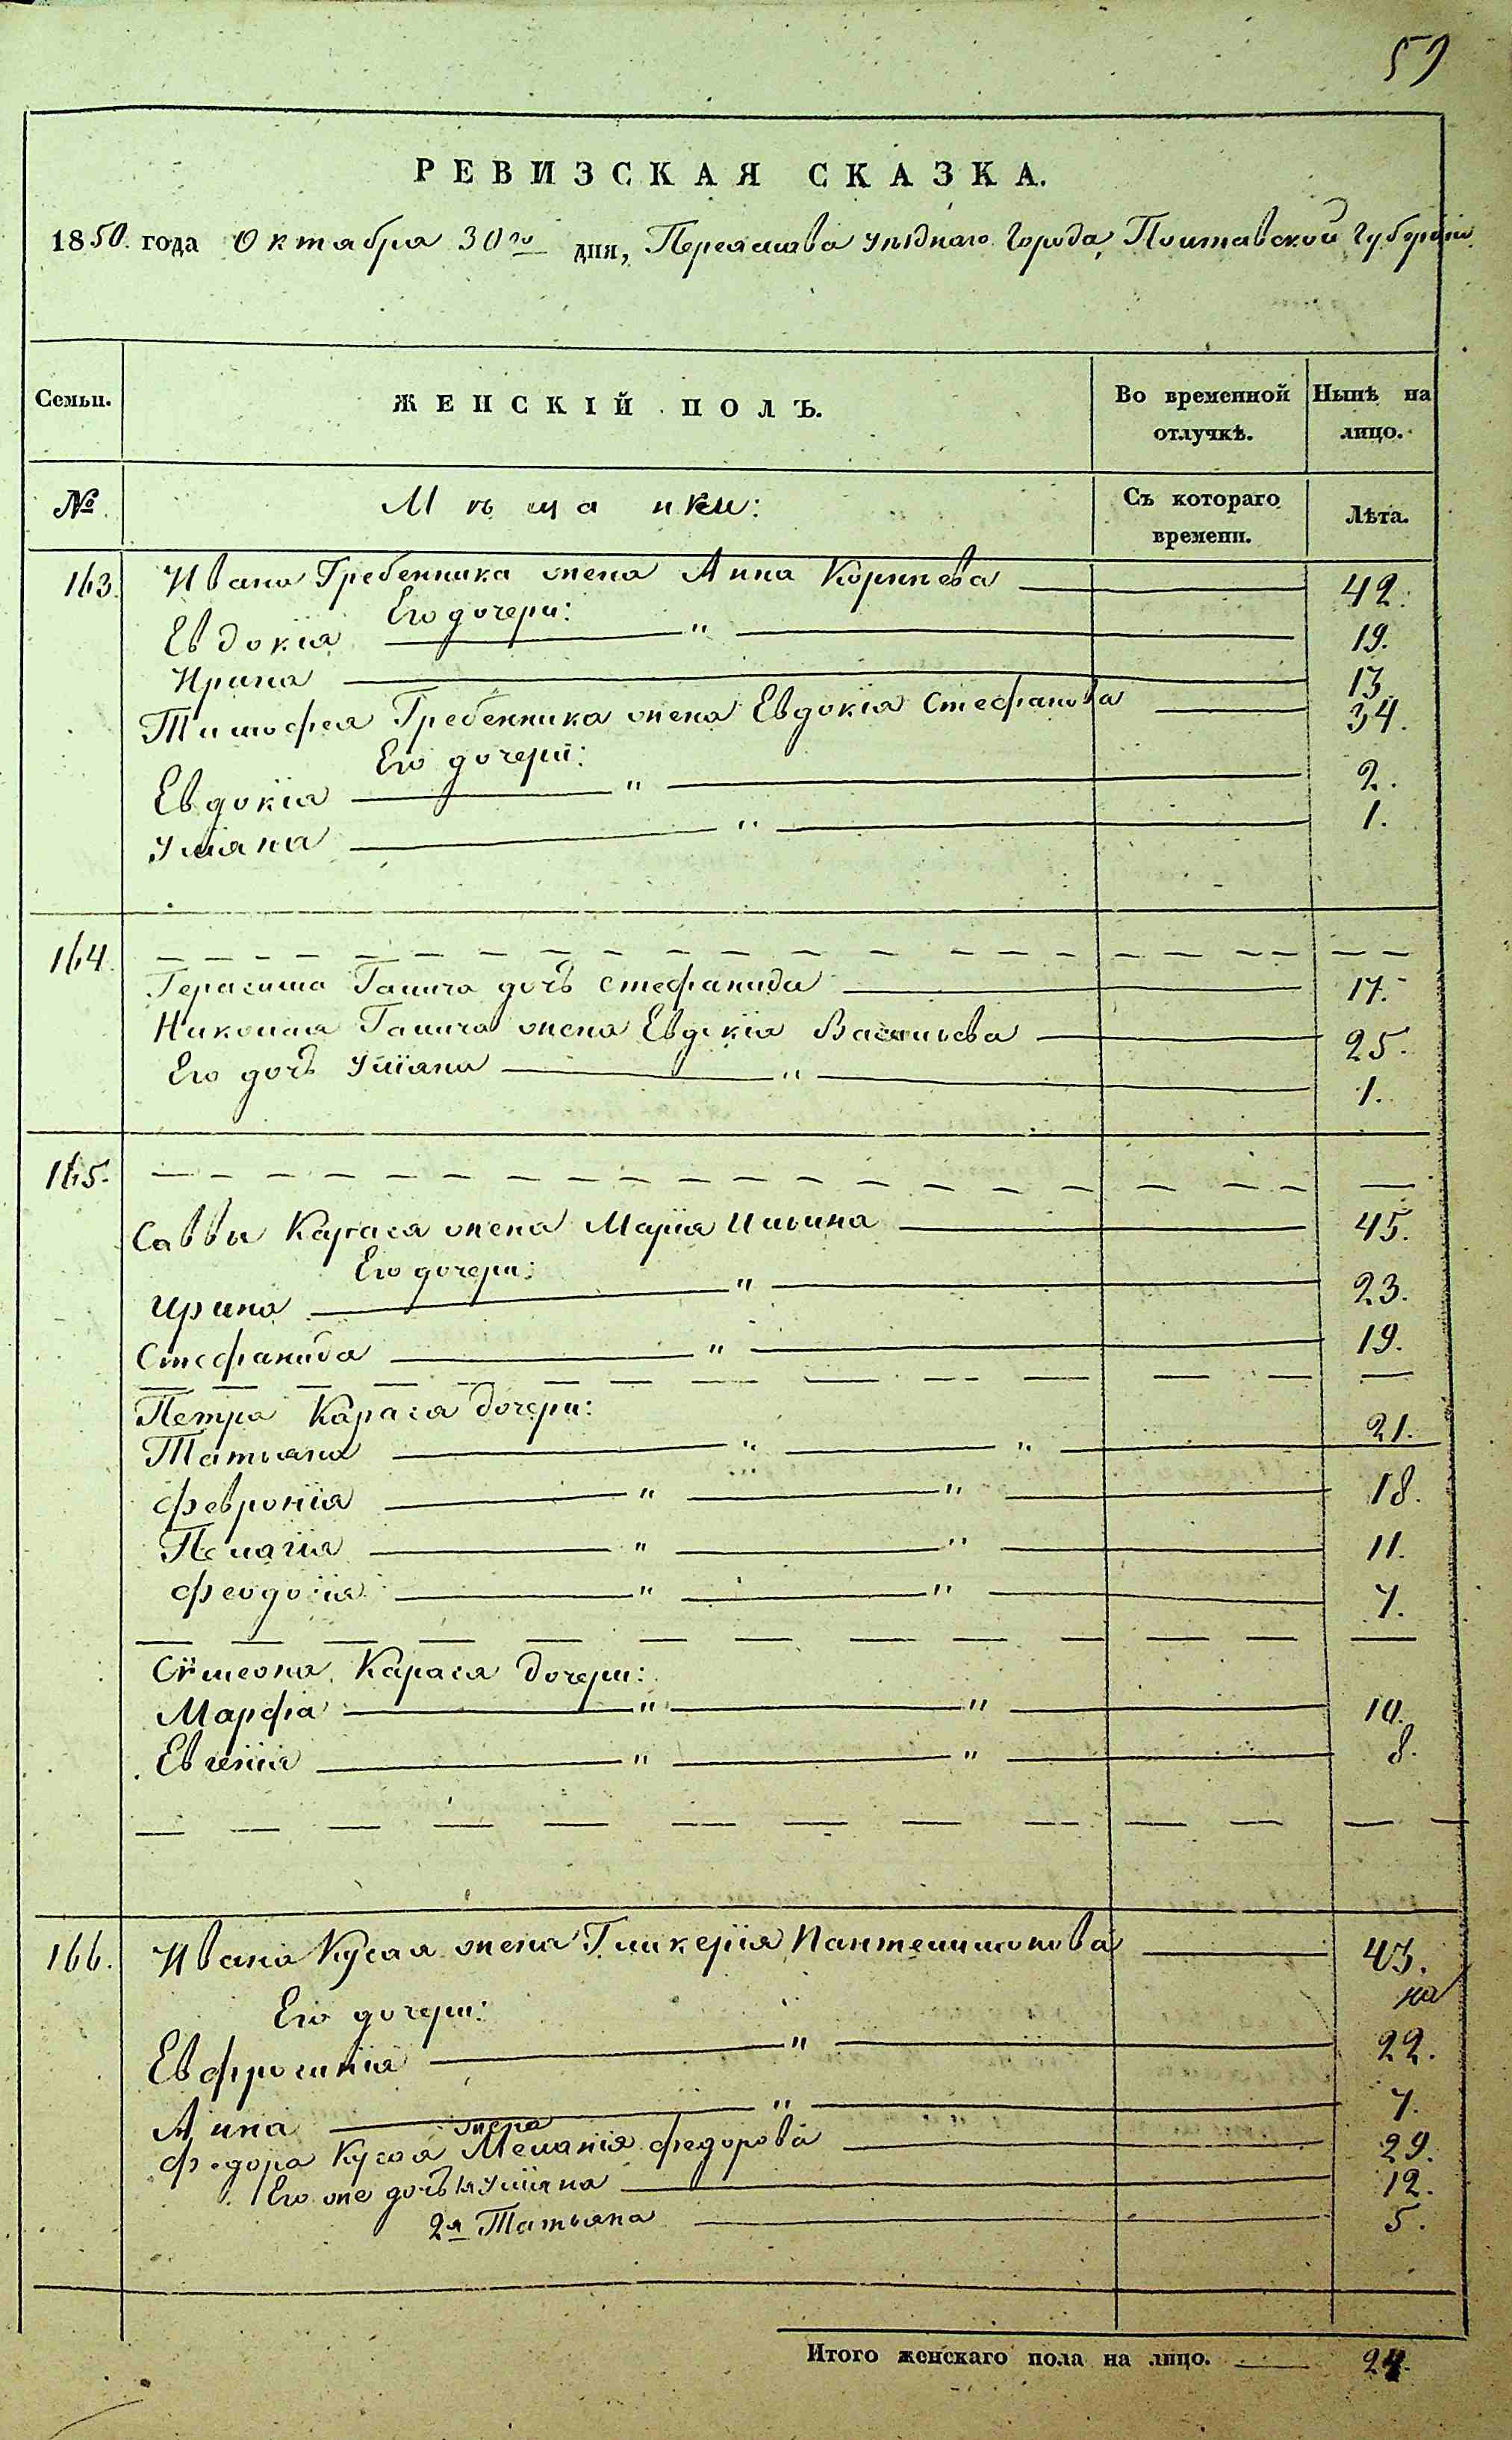 59
РЕВИЗСКАЯ СКАЗКА.
1850. года Октября 30го дня, Переяслава уѣзднаго Города, Полтавской Губерніи
Семьи. ЖЕНСКІЙ ПОЛЪ. Во временной отлучкѣ. Нынѣ на лицо.
№ Мѣщанки: Съ котораго времени. Лѣта.
163. Ивана Гребенника жена Анна Корнѣева 42.
Его дочери:
Евдокія " 19.
Ирина 13.
Тимофея Гребенника жена Евдокія Стефанова 34.
Его дочери:
Евдокія " 2.
Уліяна " 1.
164.
Герасима Галича дочь Стефанида 17.
Николая Галича жена Евдокія Васильева 25.
Его дочь Уліяна " 1.
165.
Саввы Карася жена Марія Ильина 45.
Его дочери:
Ирина " 23.
Стефанида " 19.
Петра Карася дочери:
Татьяна " " 21.
Февронія " " 18.
Пелагія " " 11.
Феодосія " " 7.
Сѵмеона Карася дочери:
Марфа " " 10.
Евгенія " " 8.
166. Ивана Кусая жена Гликерія Пантелимонова 43.
на
Его дочери:
Евфросинія " 22.
Анна " 7.
жена
Федора Кусая Меланія Федорова 29.
Его же дочь 1я Уліяна 12.
2я Татьяна 5.
Итого женскаго пола на лицо. 24.